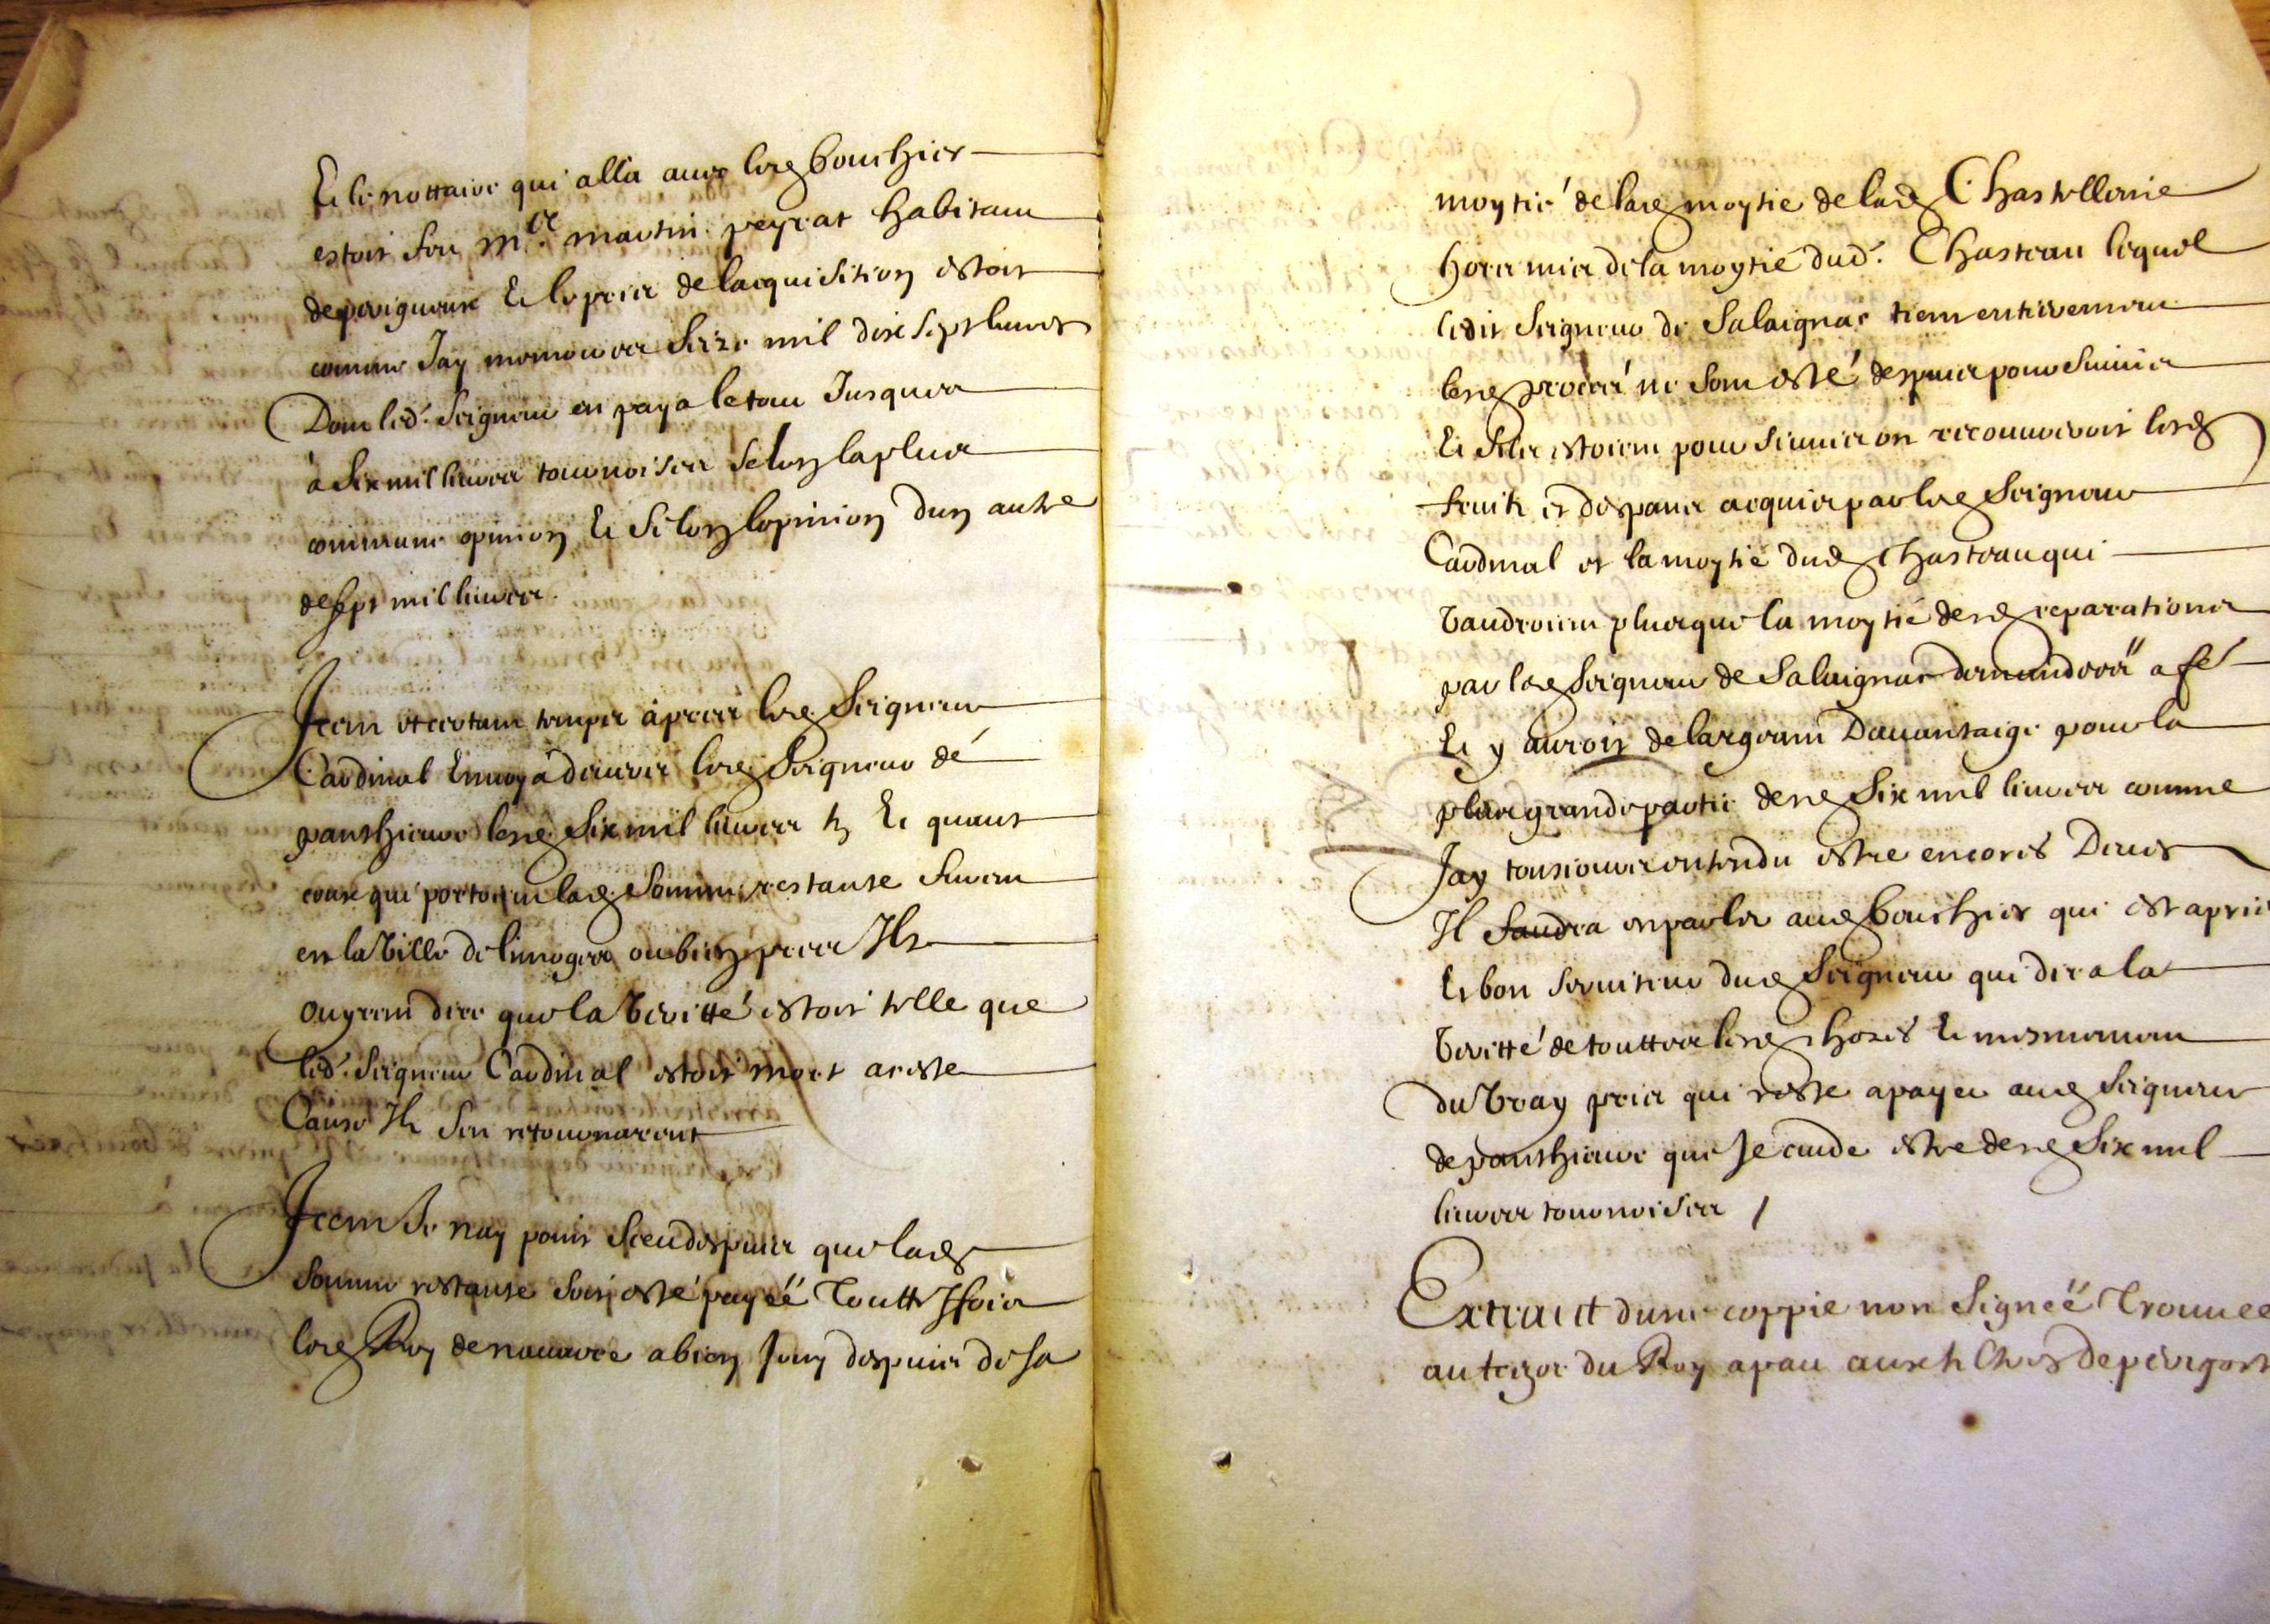 Et le nottaire qui alla avec led bouchier
estoit feu me martin peyrat habitant
de perigueux Et le pris de lacquisition estoit
comme Jay memoire Seize mil dix Sept livres
Dont led. Seigneur en paya letout Jusques
à Six mil livres tournoises Selon la plus
commune opinion Et Selon lopinion dun autre
de sept mil livres.
Item et certain temps àpres led Seigneur
Cardinal Envoya devers led Seigneur dé
panthieuvre lesd Six mil livres tz Et quant
ceux qui portoient lad Somme restante furent
en la Ville de limoges ou bien pres Ilz
ouyrent dire que la Veritté estoit telle que
led. Seigneur Cardinal estoit mort a ceste
Cause Ilz Sen retournarent
Item Je nay point Sceu despuis que lad
Somme restante Soit esté payéé Touttesfois
led Roy de navarre a bien Jouy despuis de sa
moytié de lad moytié de lad Chastellenie
hors mis de la moytié dud. Chasteau lequel
ledit Seigneur de Salaignac tient entierement
lesd procés ne Sont esté despuis poursuivis
Et Silz estoient poursuivis on recouvreroit lesd
fruitz et despans acquis par led Seigneur
Cardinal et la moytié dud Chasteau qui
Vaudroient plus que la moytié desd reparations
par led Seigneur de Salaignac
Et y auroit de largeant Davantaige pour la
plus grande partie desd Six mil livres comme
Jay tousjours entendu estre encores Deues
Il faudra en parler aud bouchier qui est apris
Et bon serviteur dud Seigneur qui dira la
Veritté de touttes lesd choses Et mesmement
du Vray pris qui reste a payer aud Seigneur
de panthieuvre que Je cuide estre desd Six mil
livres tournoises /
Extraict dune coppie non Signéé Trouvee
au trezor du Roy a pau aux de perigort